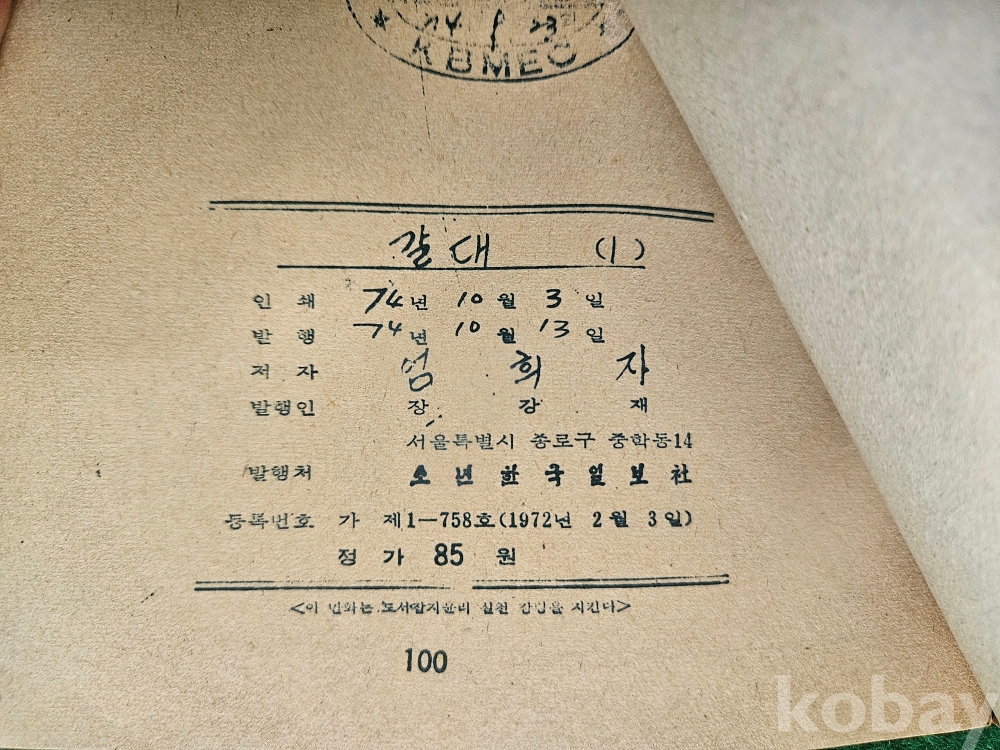 74 1 23
KBMEC
갈대 (1)
인쇄 74년 10월 3일
발행 74년 10월 13일
저자 엄희자
발행인 장강재
서울특별시 종로구 중학동14
발행처 소년한국일보社
등록번호 가 제1-758호(1972년 2월 3일)
정가 85원
<이 만화는 도서잡지윤리 실천 강령을 지킨다>
100
kobay